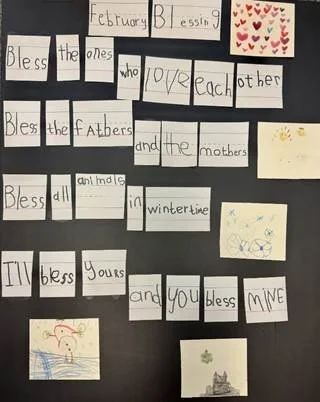 February Blessing
Bless the ones
who love each other
Bless the fAthers
and the mothers
Bless all animals
in wintertime
I'll bless yours
and you bless MINE